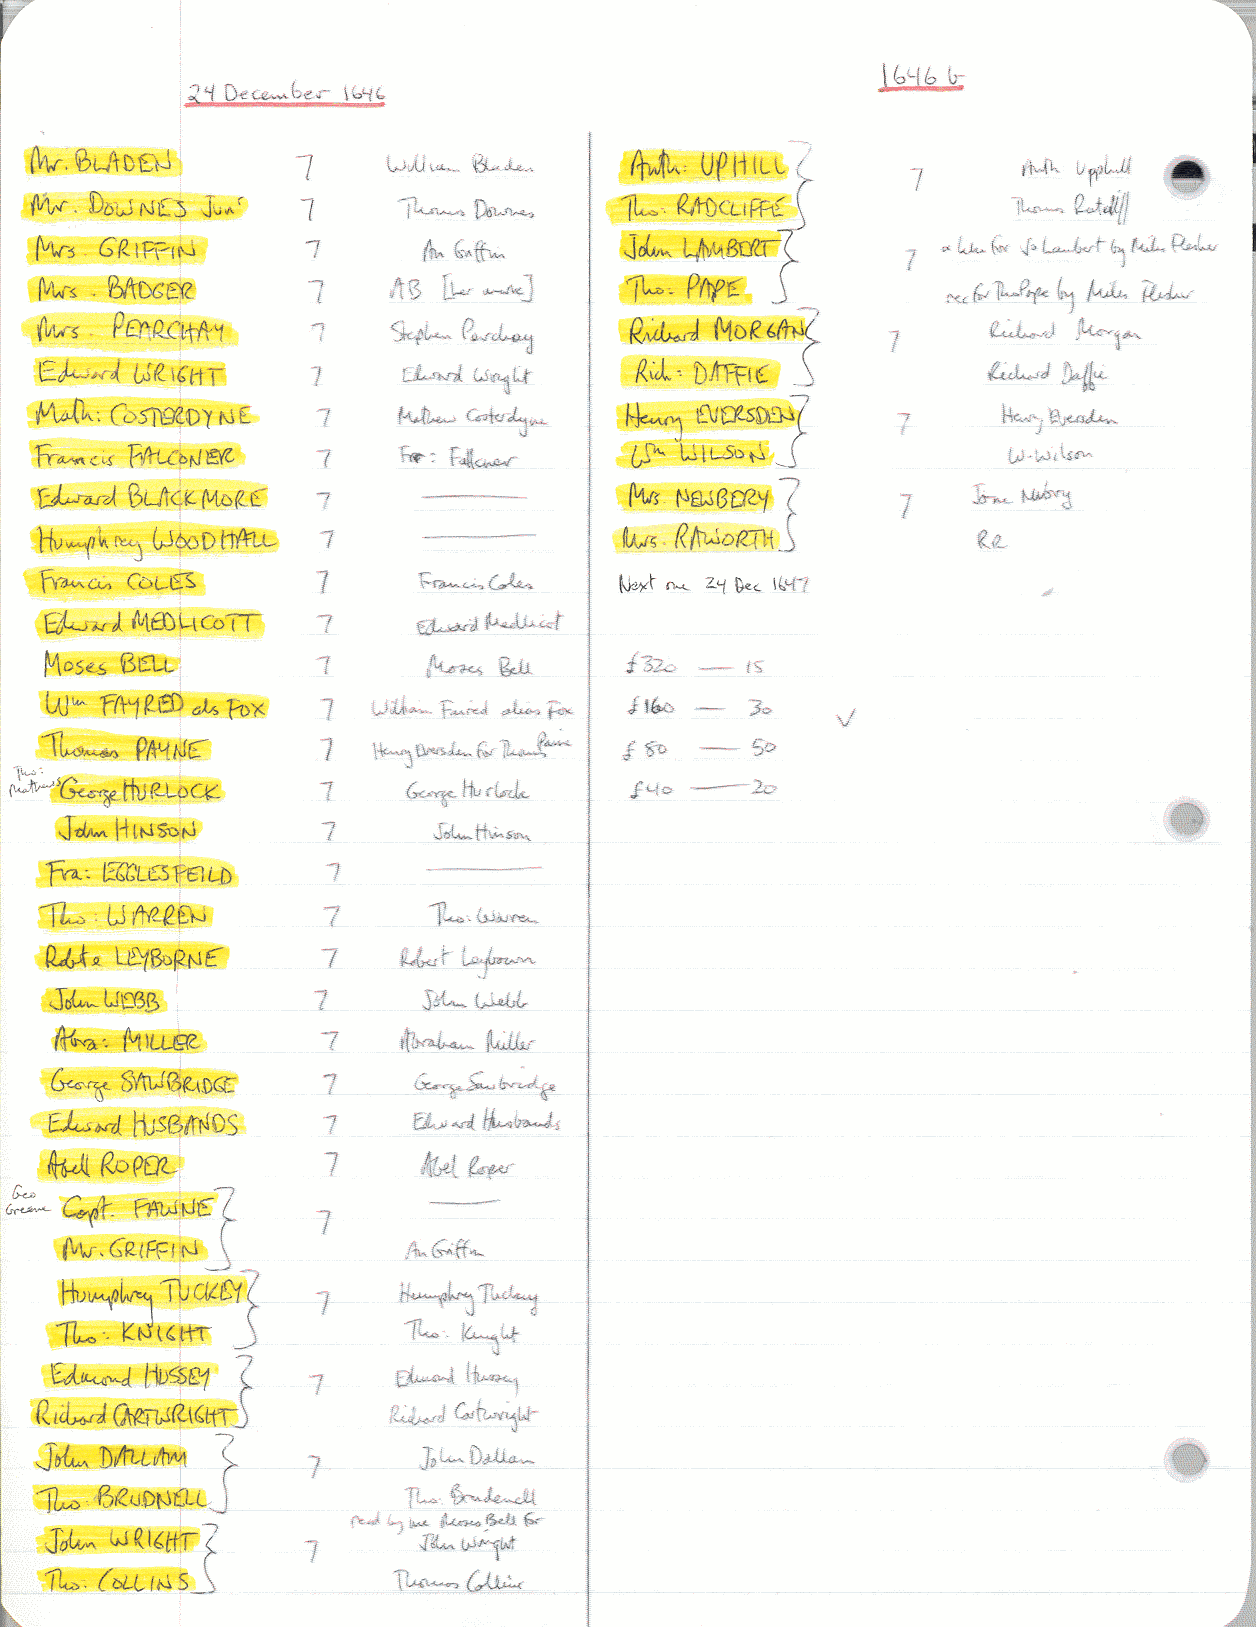 24 December 1646
1646 b
Mr. BLADEN 7 William Bladen
Mr. DOWNES Junr 7 Thomas Downes
Mrs. GRIFFIN 7 An Griffin
Mrs. BADGER 7 AB [her marke]
Mrs. PEARCHAY 7 Stephen Parchay
Edward WRIGHT 7 Edward Wright
Math: COSTERDYNE 7 Mathew Costerdyne
Francis FALCONER 7 Fr: Falkner
Edward BLACKMORE 7 ———
Humphrey WOODHALL 7 ———
Francis COLES 7 Francis Coles
Edward MEDLICOTT 7 Edward Medlicot
Moses BELL 7 Moses Bell
Wm FAYRED als FOX 7 William Faired alias Fox
Thomas PAYNE 7 Henry Eversden for Thomas Paine
Tho: Mathews George HURLOCK 7 George Hurlock
John HINSON 7 John Hinson
Fra: EGGLESFEILD 7 ———
Tho: WARREN 7 Tho: Warren
Robte LEYBORNE 7 Robert Leybourn
John WEBB 7 John Webb
Abra: MILLER 7 Abraham Miller
George SAWBRIDGE 7 George Sawbridge
Edward HUSBANDS 7 Edward Husbands
Abell ROPER 7 Abel Roper
Geo Greene Capt. FAWNE 7 ———
Mr. GRIFFIN An Griffin
Humphrey TUCKEY 7 Humphrey Tuckey
Tho: KNIGHT Tho: Knight
Edmond HUSSEY 7 Edmond Hussey
Richard CARTWRIGHT Richard Cartwright
John DALLAM 7 John Dallam
Tho: BRUDNELL Tho: Brudenell
read by me Moses Bell for
John WRIGHT 7 John Wright
Tho: COLLINS Thomas Collins
Anth: UPHILL 7 Anth Upphill
Tho: RADCLIFFE Thomas Ratcliff
John LAMBERT 7 for Jo Lambert by Miles Flesher
Tho: PAPE rec for Tho Pape by Miles Flesher
Richard MORGAN 7 Richard Morgan
Rich: DAFFIE Richard Daffie
Henry EVERSDEN 7 Henry Eversden
Wm WILSON W. Wilson
Mrs. NEWBERY 7 Jone Nubry
Mrs. RAWORTH RR
Next one 24 Dec 1647
£320 — 15
£160 — 30 ✓
£80 — 50
£40 — 20